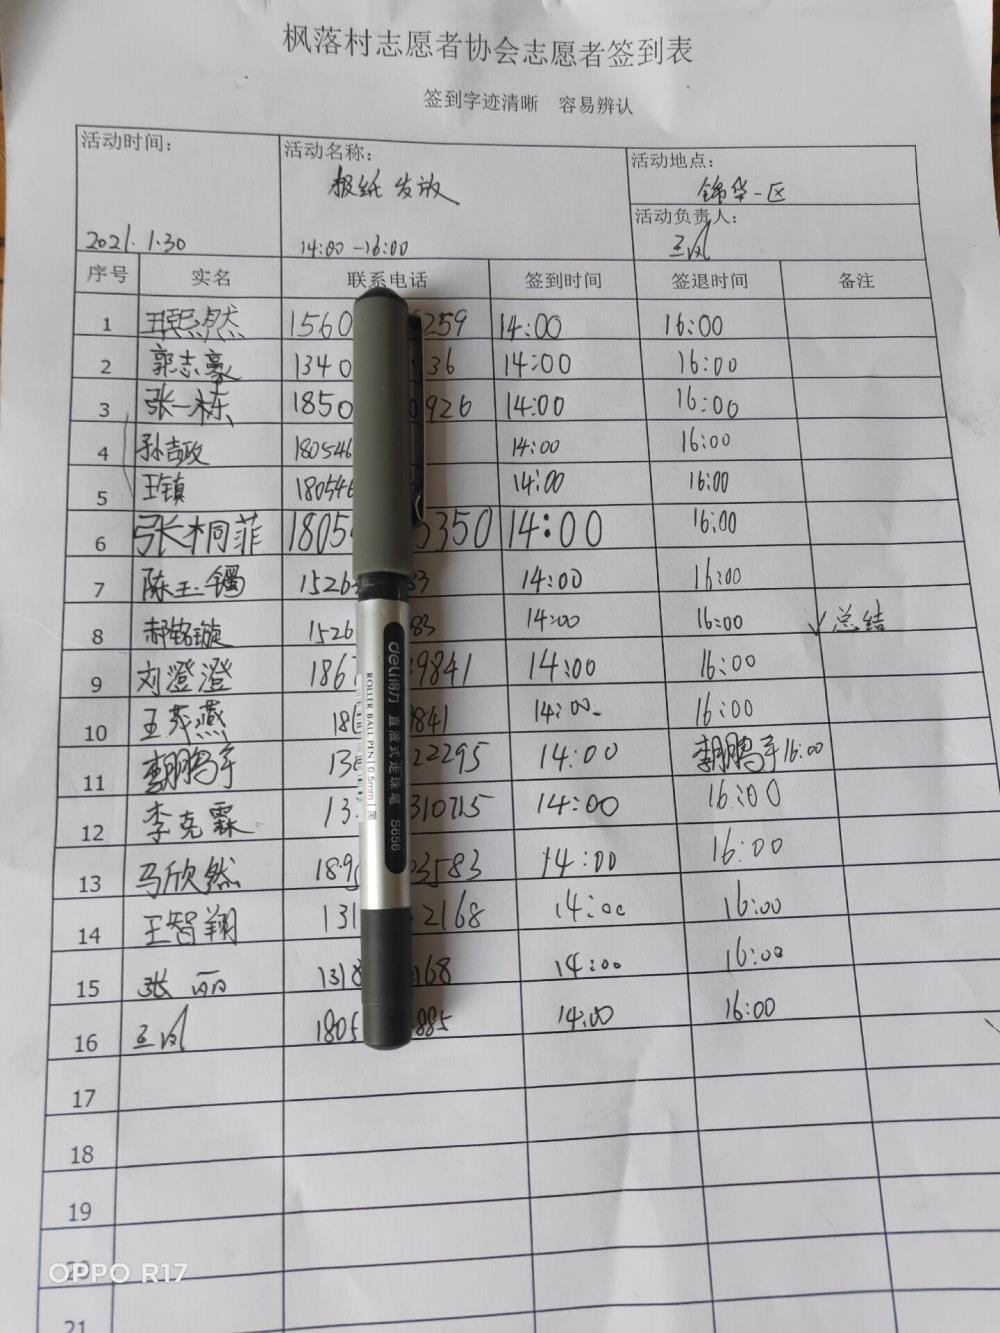 枫落村志愿者协会志愿者签到表
签到字迹清晰 容易辨认
活动时间: 活动名称: 活动地点:
报纸发放 锦华一区
活动负责人:
2021.1.30 14:00-16:00 王凤
序号 实名 联系电话 签到时间 签退时间 备注
1 王熙然 1560 259 14:00 16:00
2 郭志豪 1340 36 14:00 16:00
3 张一栋 1850 926 14:00 16:00
4 孙吉政 180546 14:00 16:00
5 王镇 180546 14:00 16:00
6 张桐菲 1805 5350 14:00 16:00
7 陈王镯 1526 83 14:00 16:00
8 郝铭璇 1526 83 14:00 16:00 ✓总结
9 刘澄澄 186 9841 14:00 16:00
10 王苏燕 18 9841 14:00 16:00
11 李鹏军 13 22295 14:00 李鹏军 16:00
12 李克霖 13 310715 14:00 16:00
13 马欣然 189 03583 14:00 16:00
14 王智翔 131 2168 14:00 16:00
15 张丽 1318 168 14:00 16:00
16 王凤 1805 885 14:00 16:00
17
18
19
21
deli得力 直液式走珠笔 S656
ROLLER BALL PEN | 0.5mm | 黑
OPPO R17